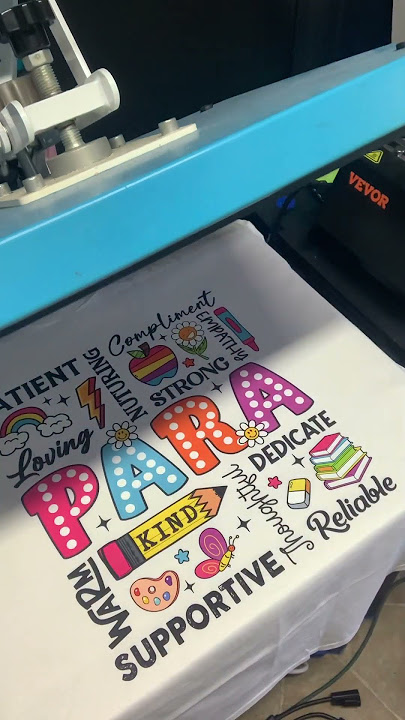 Compliment
EMPATHY
NUTURING
ATIENT
STRONG
Loving
PARA
DEDICATE
KIND
Thoughtful
Reliable
WARM
SUPPORTIVE
VEVOR